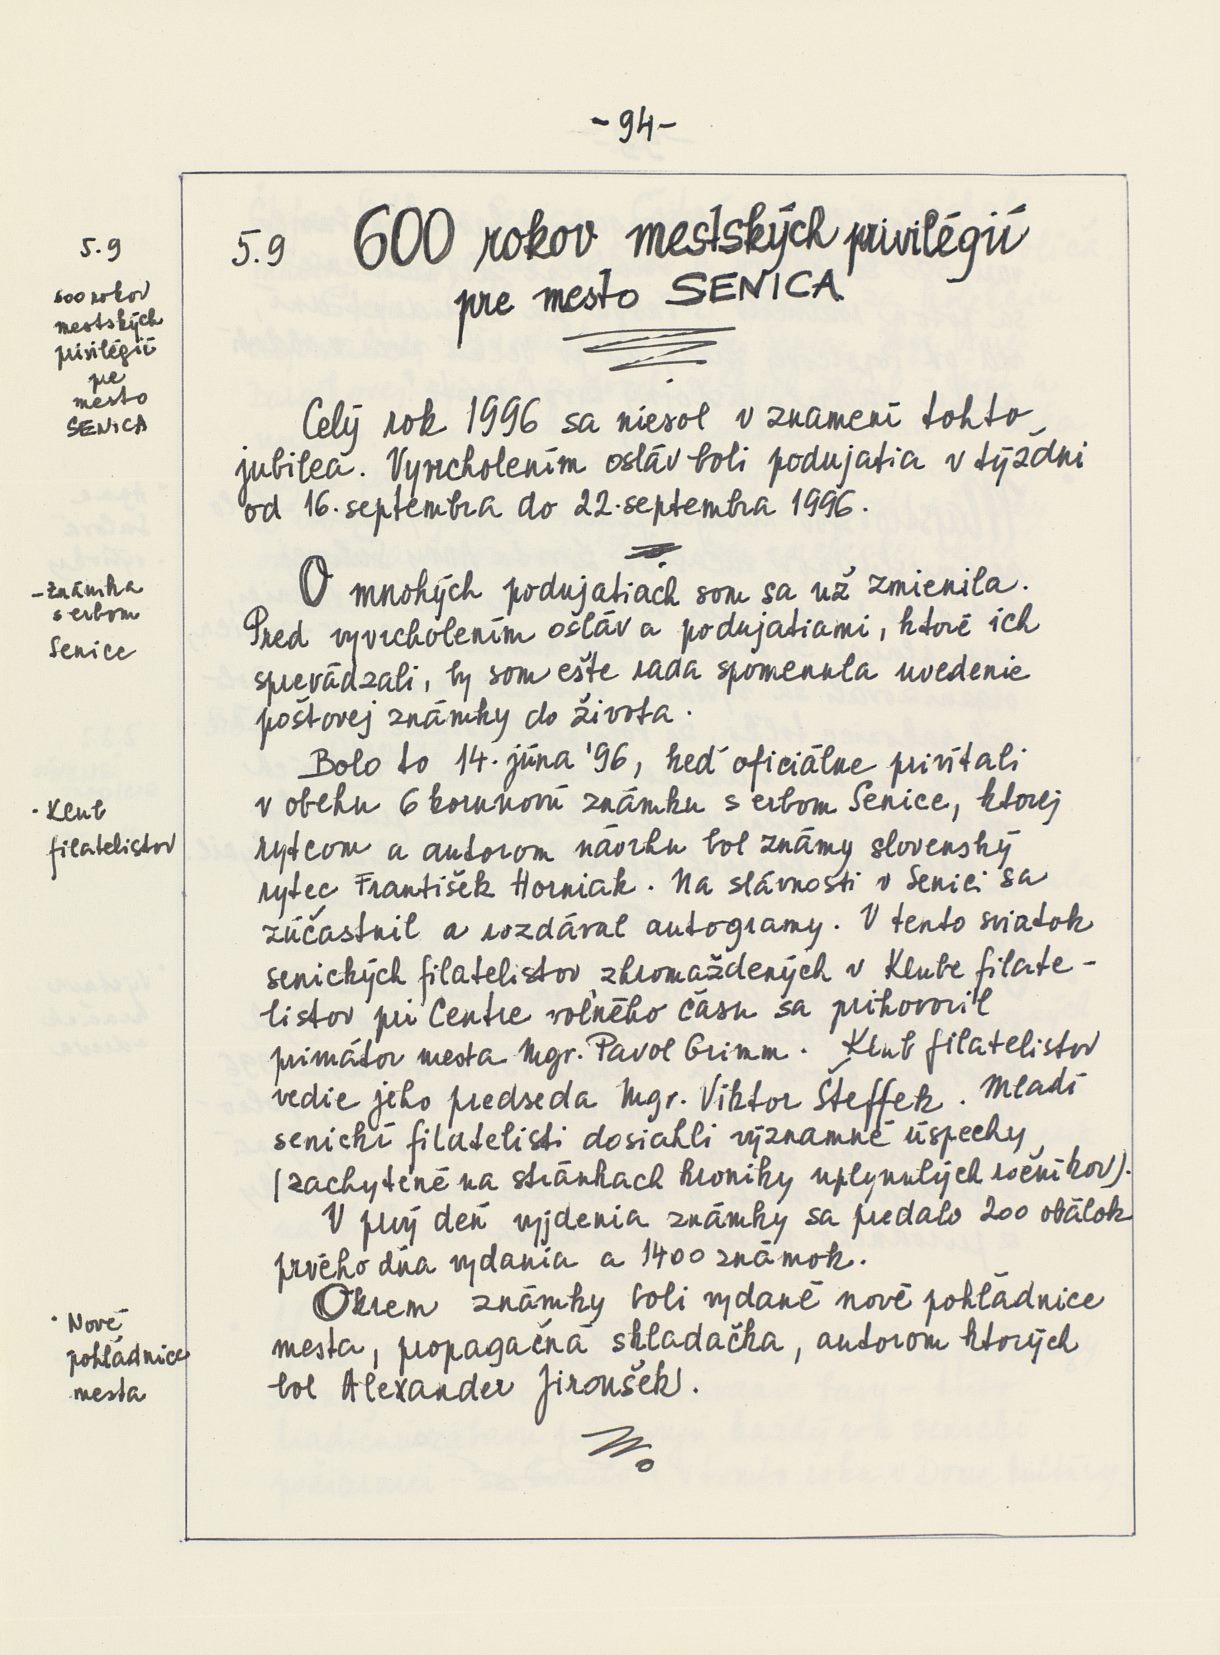 - 94 -
5.9
600 rokov
mestských
privilégií
pre
mesto
SENICA
5.9 600 rokov mestských privilégií
pre mesto SENICA
Celý rok 1996 sa niesol v znamení tohto
jubilea. Vyvrcholením osláv boli podujatia v týždni
od 16. septembra do 22. septembra 1996.
- známka
s erbom
Senice
O mnohých podujatiach som sa už zmienila.
Pred vyvrcholením osláv a podujatiami, ktoré ich
sprevádzali, by som ešte rada spomenula uvedenie
poštovej známky do života.
Bolo to 14. júna '96, keď oficiálne privítali
v obehu 6 korunovú známku s erbom Senice, ktorej
rytcom a autorom návrhu bol známy slovenský
rytec František Horniak. Na slávnosti v Senici sa
zúčastnil a rozdával autogramy. V tento sviatok
senických filatelistov zhromaždených v Klube filate-
listov pri Centre voľného času sa prihovoril
primátor mesta Mgr. Pavol Grimm. Klub filatelistov
vedie jeho predseda Mgr. Viktor Šteffek. Mladí
senickí filatelisti dosiahli významné úspechy
(zachytené na stránkach kroniky uplynulých ročníkov).
V prvý deň vyjdenia známky sa predalo 200 obálok
prvého dňa vydania a 1400 známok.
Okrem známky boli vydané nové pohľadnice
mesta, propagačná skladačka, autorom ktorých
bol Alexander Jiroušek.
· Klub
filatelistov
· Nové
pohľadnice
mesta